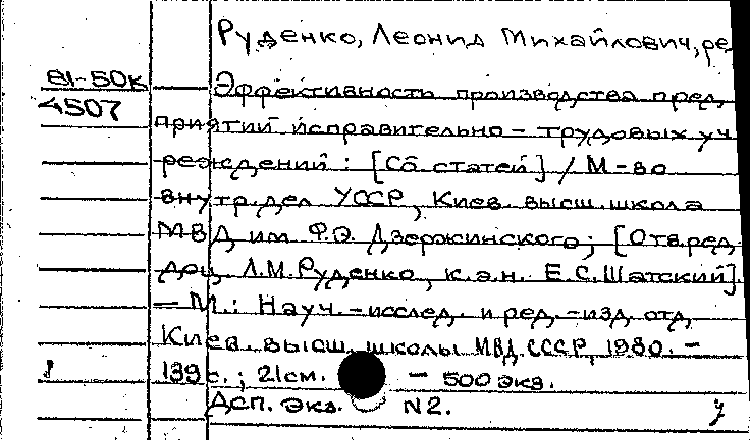 Руденко, Леонид Михайлович, ре
81-50к
4507
Эффективность производства пред
приятий исправительно-трудовых уч
реждений: [Сб статей] / М-во
внутр.дел УССР, Киев. высш. школа
МВД им. Ф.Э. Дзержинского; [Отв.ред.
доц. Л.М.Руденко, к.э.н. Е.С.Шатский].
— М.: Науч.-исслед. и ред.-изд. отд.
Киев. высш. школы МВД СССР, 1980. —
139с.; 21см. — 500 экз.
Дсп. Экз. N2.